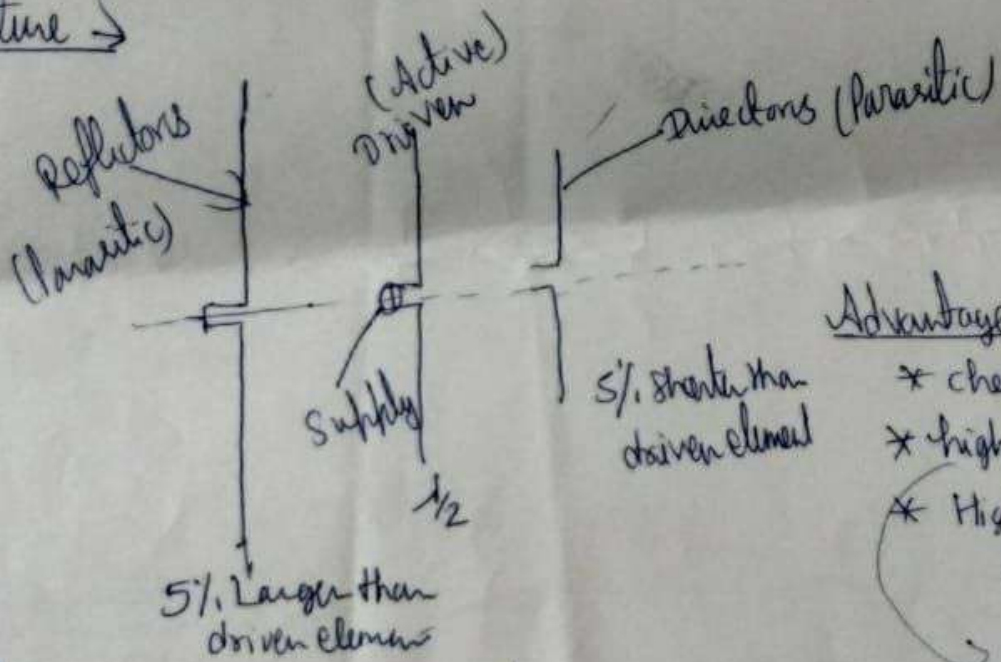 ture →
Reflectors
(Parasitic)
(Active)
Driven
Directors (Parasitic)
Supply
λ/2
5% Larger than
driven element
5% shorter than
driven element
Advantage
* che
* high
* Hig